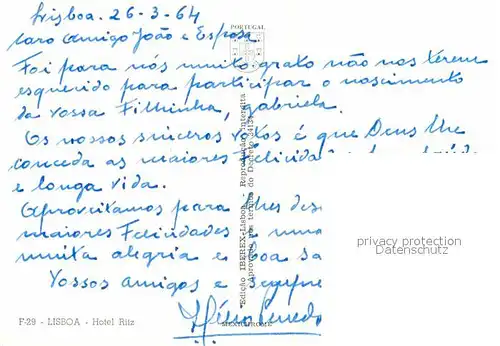 Lisboa. 26-3-64
Caro Amigo João e Esposa.
Foi para nós muito grato não nos terem
esquecido para participar o nascimento
da vossa Filhinha, Gabriela.
Os nossos sinceros votos é que Deus lhe
conceda as maiores Felicidad
e longa vida.
Aproveitamos para lhes des
maiores Felicidades e uma
muita alegria e boa sa
Vossos amigos e sempre
PORTUGAL
Edição IBEREX-Lisboa - Reprodução interdita
MEXICHROME
F-29 - LISBOA - Hotel Ritz
privacy protection
Datenschutz